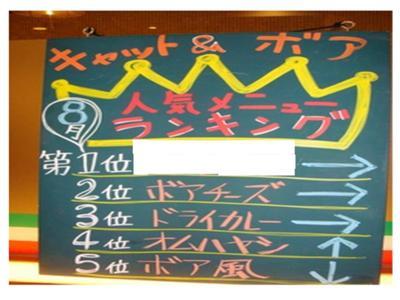 キャット & ボア
8月
人気メニュー
ランキング
第1位 →
2位 ボアチーズ →
3位 ドライカレー →
4位 オムハヤシ ↑
5位 ボア風 ↓